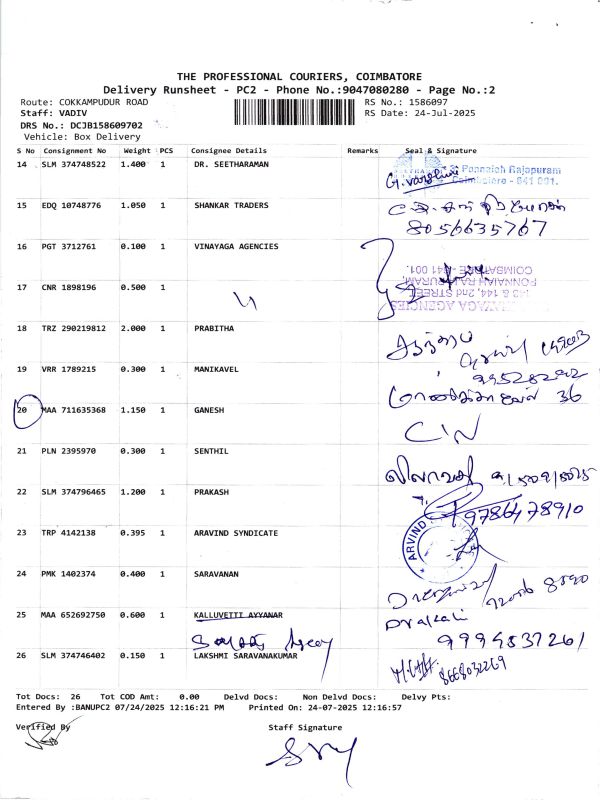 THE PROFESSIONAL COURIERS, COIMBATORE
Delivery Runsheet - PC2 - Phone No.:9047080280 - Page No.:2
Route: COKKAMPUDUR ROAD RS No.: 1586097
Staff: VADIV RS Date: 24-Jul-2025
DRS No.: DCJB158609702
Vehicle: Box Delivery
S No Consignment No Weight PCS Consignee Details Remarks Seal & Signature
14 SLM 374748522 1.400 1 DR. SEETHARAMAN
Ponnaiah Rajapuram
Coimbatore - 641 001.
15 EDQ 10748776 1.050 1 SHANKAR TRADERS
8056635767
16 PGT 3712761 0.100 1 VINAYAGA AGENCIES
17 CNR 1898196 0.500 1
VINAYAGA AGENCIES
143 & 144, 2nd STREET,
PONNAIAH RAJAPURAM,
COIMBATORE - 641 001.
18 TRZ 290219812 2.000 1 PRABITHA
19 VRR 1789215 0.300 1 MANIKAVEL
20 MAA 711635368 1.150 1 GANESH
C/N
21 PLN 2395970 0.300 1 SENTHIL
22 SLM 374796465 1.200 1 PRAKASH
9786478910
23 TRP 4142138 0.395 1 ARAVIND SYNDICATE
ARVIND
24 PMK 1402374 0.400 1 SARAVANAN
25 MAA 652692750 0.600 1 KALLUVETTI AYYANAR
26 SLM 374746402 0.150 1 LAKSHMI SARAVANAKUMAR
8668032269
Tot Docs: 26 Tot COD Amt: 0.00 Delvd Docs: Non Delvd Docs: Delvy Pts:
Entered By :BANUPC2 07/24/2025 12:16:21 PM Printed On: 24-07-2025 12:16:57
Verified By Staff Signature